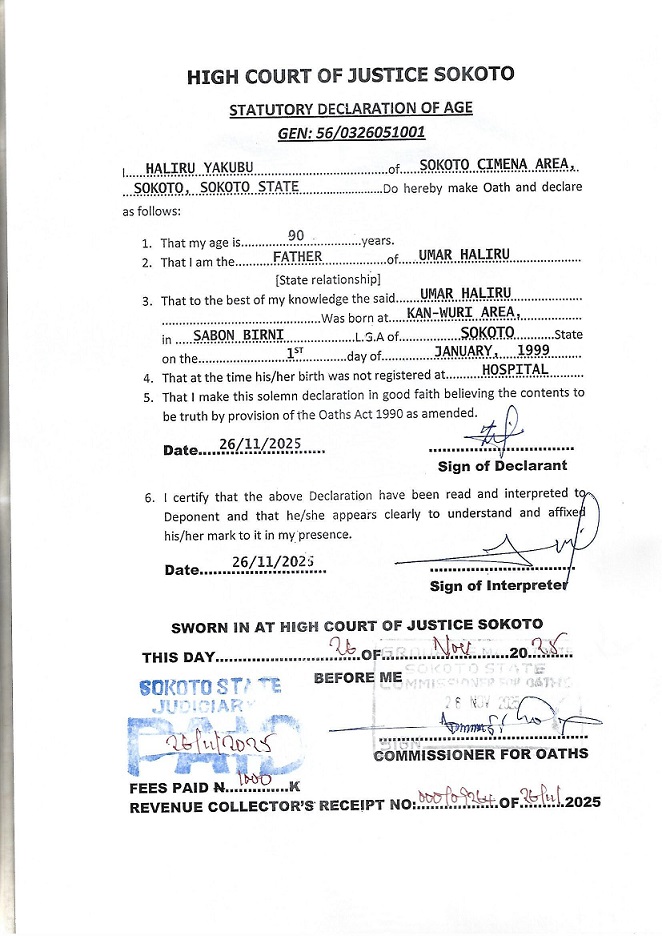 HIGH COURT OF JUSTICE SOKOTO
STATUTORY DECLARATION OF AGE
GEN: 56/0326051001
I....HALIRU YAKUBU..............................of....SOKOTO CIMENA AREA,
..SOKOTO, SOKOTO STATE...................Do hereby make Oath and declare
as follows:
1. That my age is...........90.............years.
2. That I am the........FATHER..............of....UMAR HALIRU................
[State relationship]
3. That to the best of my knowledge the said....UMAR HALIRU................
........................................Was born at....KAN-WURI AREA,................
in ...SABON BIRNI..................L.G.A of...............SOKOTO..........State
on the....................1ST...........day of...........JANUARY, 1999........
4. That at the time his/her birth was not registered at.........HOSPITAL.........
5. That I make this solemn declaration in good faith believing the contents to
be truth by provision of the Oaths Act 1990 as amended.
Date....26/11/2025......
Sign of Declarant
6. I certify that the above Declaration have been read and interpreted to
Deponent and that he/she appears clearly to understand and affixed
his/her mark to it in my presence.
Date.......26/11/2025...
Sign of Interpreter
SWORN IN AT HIGH COURT OF JUSTICE SOKOTO
THIS DAY..............................26.OF.........Nov.........20.25
BEFORE ME
SOKOTO STATE
COMMISSIONER FOR OATHS
26 NOV 2025
SIGN
SOKOTO STATE
JUDICIARY
PAID
26/11/2025
COMMISSIONER FOR OATHS
FEES PAID N....1000....K
REVENUE COLLECTOR'S RECEIPT NO:..............OF.26/11.2025